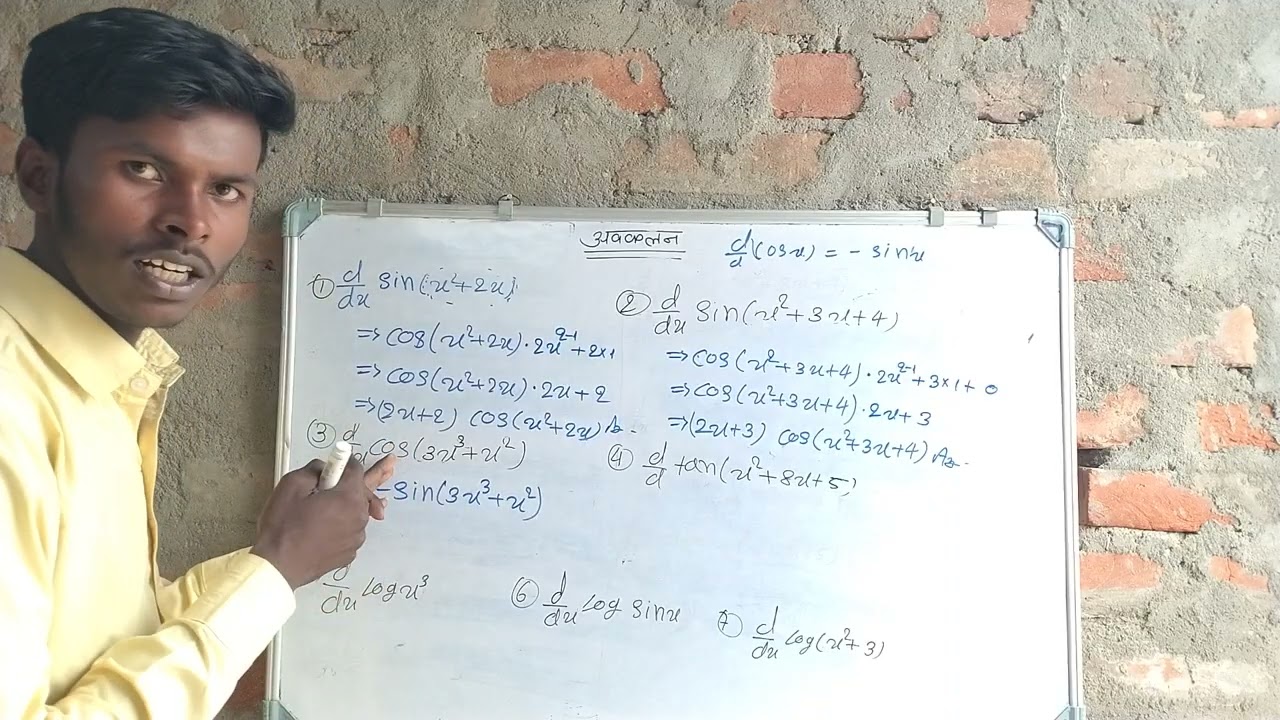 अवकलन
d/d (cosx) = - sinx
① d/dx sin(x²+2x)
⇒ cos(x²+2x)·2x²⁻¹+2×1
⇒ cos(x²+2x)·2x+2
⇒ (2x+2) cos(x²+2x) As-
② d/dx sin(x²+3x+4)
⇒ cos(x²+3x+4)·2x²⁻¹+3×1+0
⇒ cos(x²+3x+4)·2x+3
⇒ (2x+3) cos(x²+3x+4) As-
③ d/x cos(3x³+x²)
-sin(3x³+x²)
④ d/d tan(x²+8x+5)
d/dx logx³
⑥ d/dx log sinx
⑦ d/dx log(x²+3)